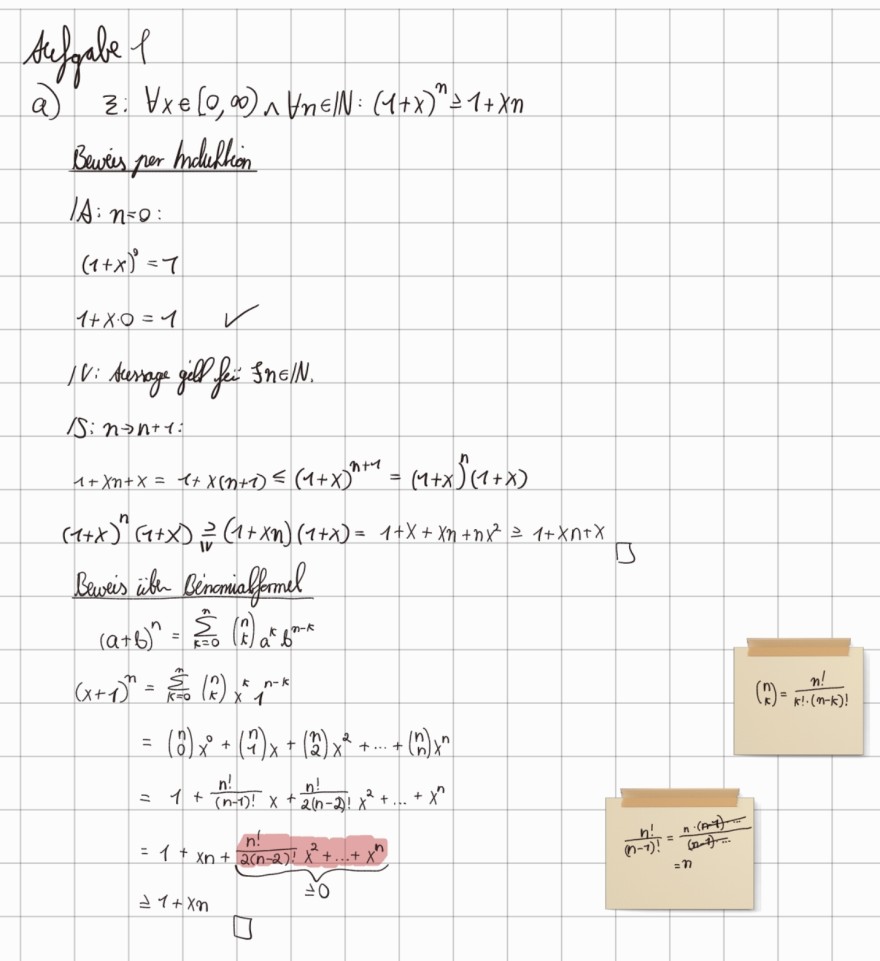 Aufgabe 1
a) Z: ∀x∈[0,∞) ∧ ∀n∈ℕ: (1+x)^n ≥ 1+xn
Beweis per Induktion
IA: n=0:
(1+x)^0 = 1
1+x·0 = 1 ✓
IV: Aussage gilt für ∃n∈ℕ.
IS: n→n+1:
1+xn+x = 1+x(n+1) ≤ (1+x)^{n+1} = (1+x)^n (1+x)
(1+x)^n (1+x) ≥_{IV} (1+xn)(1+x) = 1+x+xn+nx² ≥ 1+xn+x □
Beweis über Binomialformel
(a+b)^n = ∑_{k=0}^{n} (n über k) a^k b^{n-k}
(x+1)^n = ∑_{k=0}^{n} (n über k) x^k 1^{n-k}
= (n über 0) x^0 + (n über 1) x + (n über 2) x² + ... + (n över n) x^n
= 1 + n!/(n-1)! x + n!/2(n-2)! x² + ... + x^n
= 1 + xn + n!/2(n-2)! x² + ... + x^n
≥0
≥ 1+xn
□
(n über k) = n!/k!·(n-k)!
n!/(n-1)! = n·(n-1)·.../(n-1)·...
=n